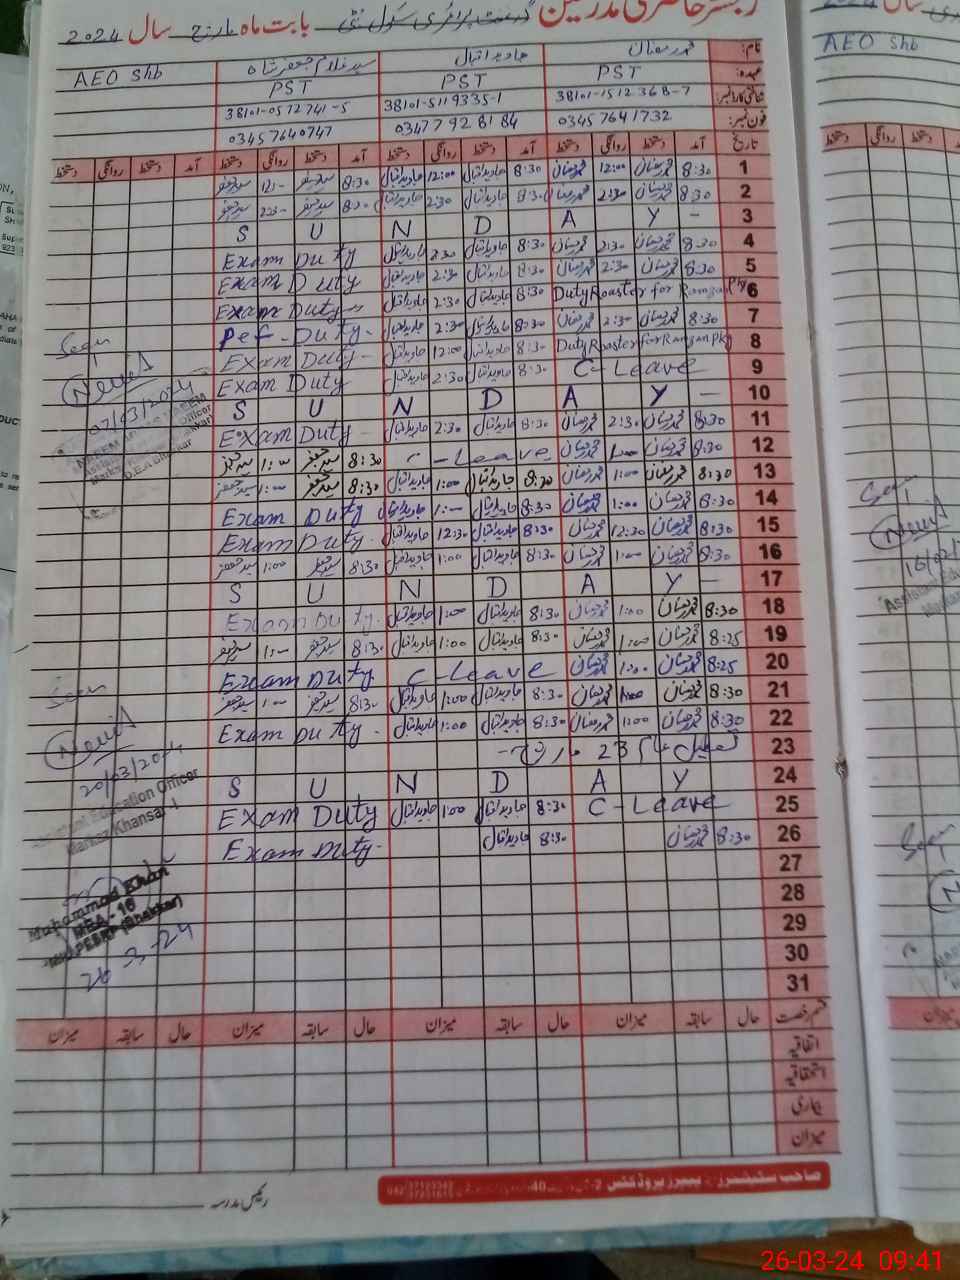 رجسٹر حاضری مدرسین گورنمنٹ پرائمری سکول بابت ماہ مارچ سال 2024
نام: محمد رمضان جاوید اقبال سید غلام جعفر شاہ AEO Shb
عہدہ: PST PST PST
شناختی کارڈ نمبر: 38101-1512368-7 38101-5119335-1 38101-0572741-5
فون نمبر: 03457641732 03477928184 03457640747
تاریخ آمد دستخط روانگی دستخط آمد دستخط روانگی دستخط آمد دستخط روانگی دستخط آمد دستخط روانگی دستخط
1 8:30 محمد رمضان 12:00 محمد رمضان 8:30 جاوید اقبال 12:00 جاوید اقبال 8:30 سید جعفر 12:00 سید جعفر
2 8:30 محمد رمضان 2:30 محمد رمضان 8:30 جاوید اقبال 2:30 جاوید اقبال 8:30 سید جعفر 2:30 سید جعفر
3 S U N D A Y -
4 8:30 محمد رمضان 2:30 محمد رمضان 8:30 جاوید اقبال 2:30 جاوید اقبال Exam Duty
5 8:30 محمد رمضان 2:30 محمد رمضان 8:30 جاوید اقبال 2:30 جاوید اقبال Exam Duty
6 Duty Roaster for Ramzan Pkg 8:30 جاوید اقبال 2:30 جاوید اقبال Exam Duty
7 8:30 محمد رمضان 2:30 محمد رمضان 8:30 جاوید اقبال 2:30 جاوید اقبال Pef-Duty-
8 Duty Roaster for Ramzan Pkg 8:30 جاوید اقبال 12:00 جاوید اقبال Exam Duty-
9 C-Leave 8:30 جاوید اقبال 2:30 جاوید اقبال Exam Duty
10 S U N D A Y -
11 8:30 محمد رمضان 2:30 محمد رمضان 8:30 جاوید اقبال 2:30 جاوید اقبال Exam Duty-
12 8:30 محمد رمضان 1:00 محمد رمضان C-Leave 8:30 سید جعفر 1:00 سید جعفر
13 8:30 محمد رمضان 1:00 محمد رمضان 8:30 جاوید اقبال 1:00 جاوید اقبال 8:30 سید جعفر 1:00 سید جعفر
14 8:30 محمد رمضان 1:00 محمد رمضان 8:30 جاوید اقبال 1:00 جاوید اقبال Exam Duty
15 8:30 محمد رمضان 12:30 محمد رمضان 8:30 جاوید اقبال 12:30 جاوید اقبال Exam Duty.
16 8:30 محمد رمضان 1:00 محمد رمضان 8:30 جاوید اقبال 1:00 جاوید اقبال 8:30 سید جعفر 1:00 سید جعفر
17 S U N D A Y -
18 8:30 محمد رمضان 1:00 محمد رمضان 8:30 جاوید اقبال 1:00 جاوید اقبال Exam Duty.
19 8:25 محمد رمضان 1:00 محمد رمضان 8:30 جاوید اقبال 1:00 جاوید اقبال 8:30 سید جعفر 1:00 سید جعفر
20 8:25 محمد رمضان 1:00 محمد رمضان C-Leave Exam Duty
21 8:30 محمد رمضان 1:00 محمد رمضان 8:30 جاوید اقبال 1:00 جاوید اقبال 8:30 سید جعفر 1:00 سید جعفر
22 8:30 محمد رمضان 1:00 محمد رمضان 8:30 جاوید اقبال 1:00 جاوید اقبال Exam Duty.
23 تعطیل 23 مارچ
24 S U N D A Y
25 C-Leave 8:30 جاوید اقبال 1:00 جاوید اقبال Exam Duty
26 8:30 محمد رمضان 8:30 جاوید اقبال Exam Duty-
27
28
29
30
31
قسم رخصت حال سابقہ میزان حال سابقہ میزان حال سابقہ میزان حال سابقہ میزان
اتفاقیہ
استحقاقیہ
بیماری
میزان
Seen
07/03/2024
Assistant Education Officer
Seen
20/03/2024
Assistant Education Officer
Markaz Khansar I
Muhammad Khan
MEA-16
PESRP (Bhakkar)
26-3-24
رئیس مدرسہ
AEO Shb
Seen
Seen
26-03-24 09:41